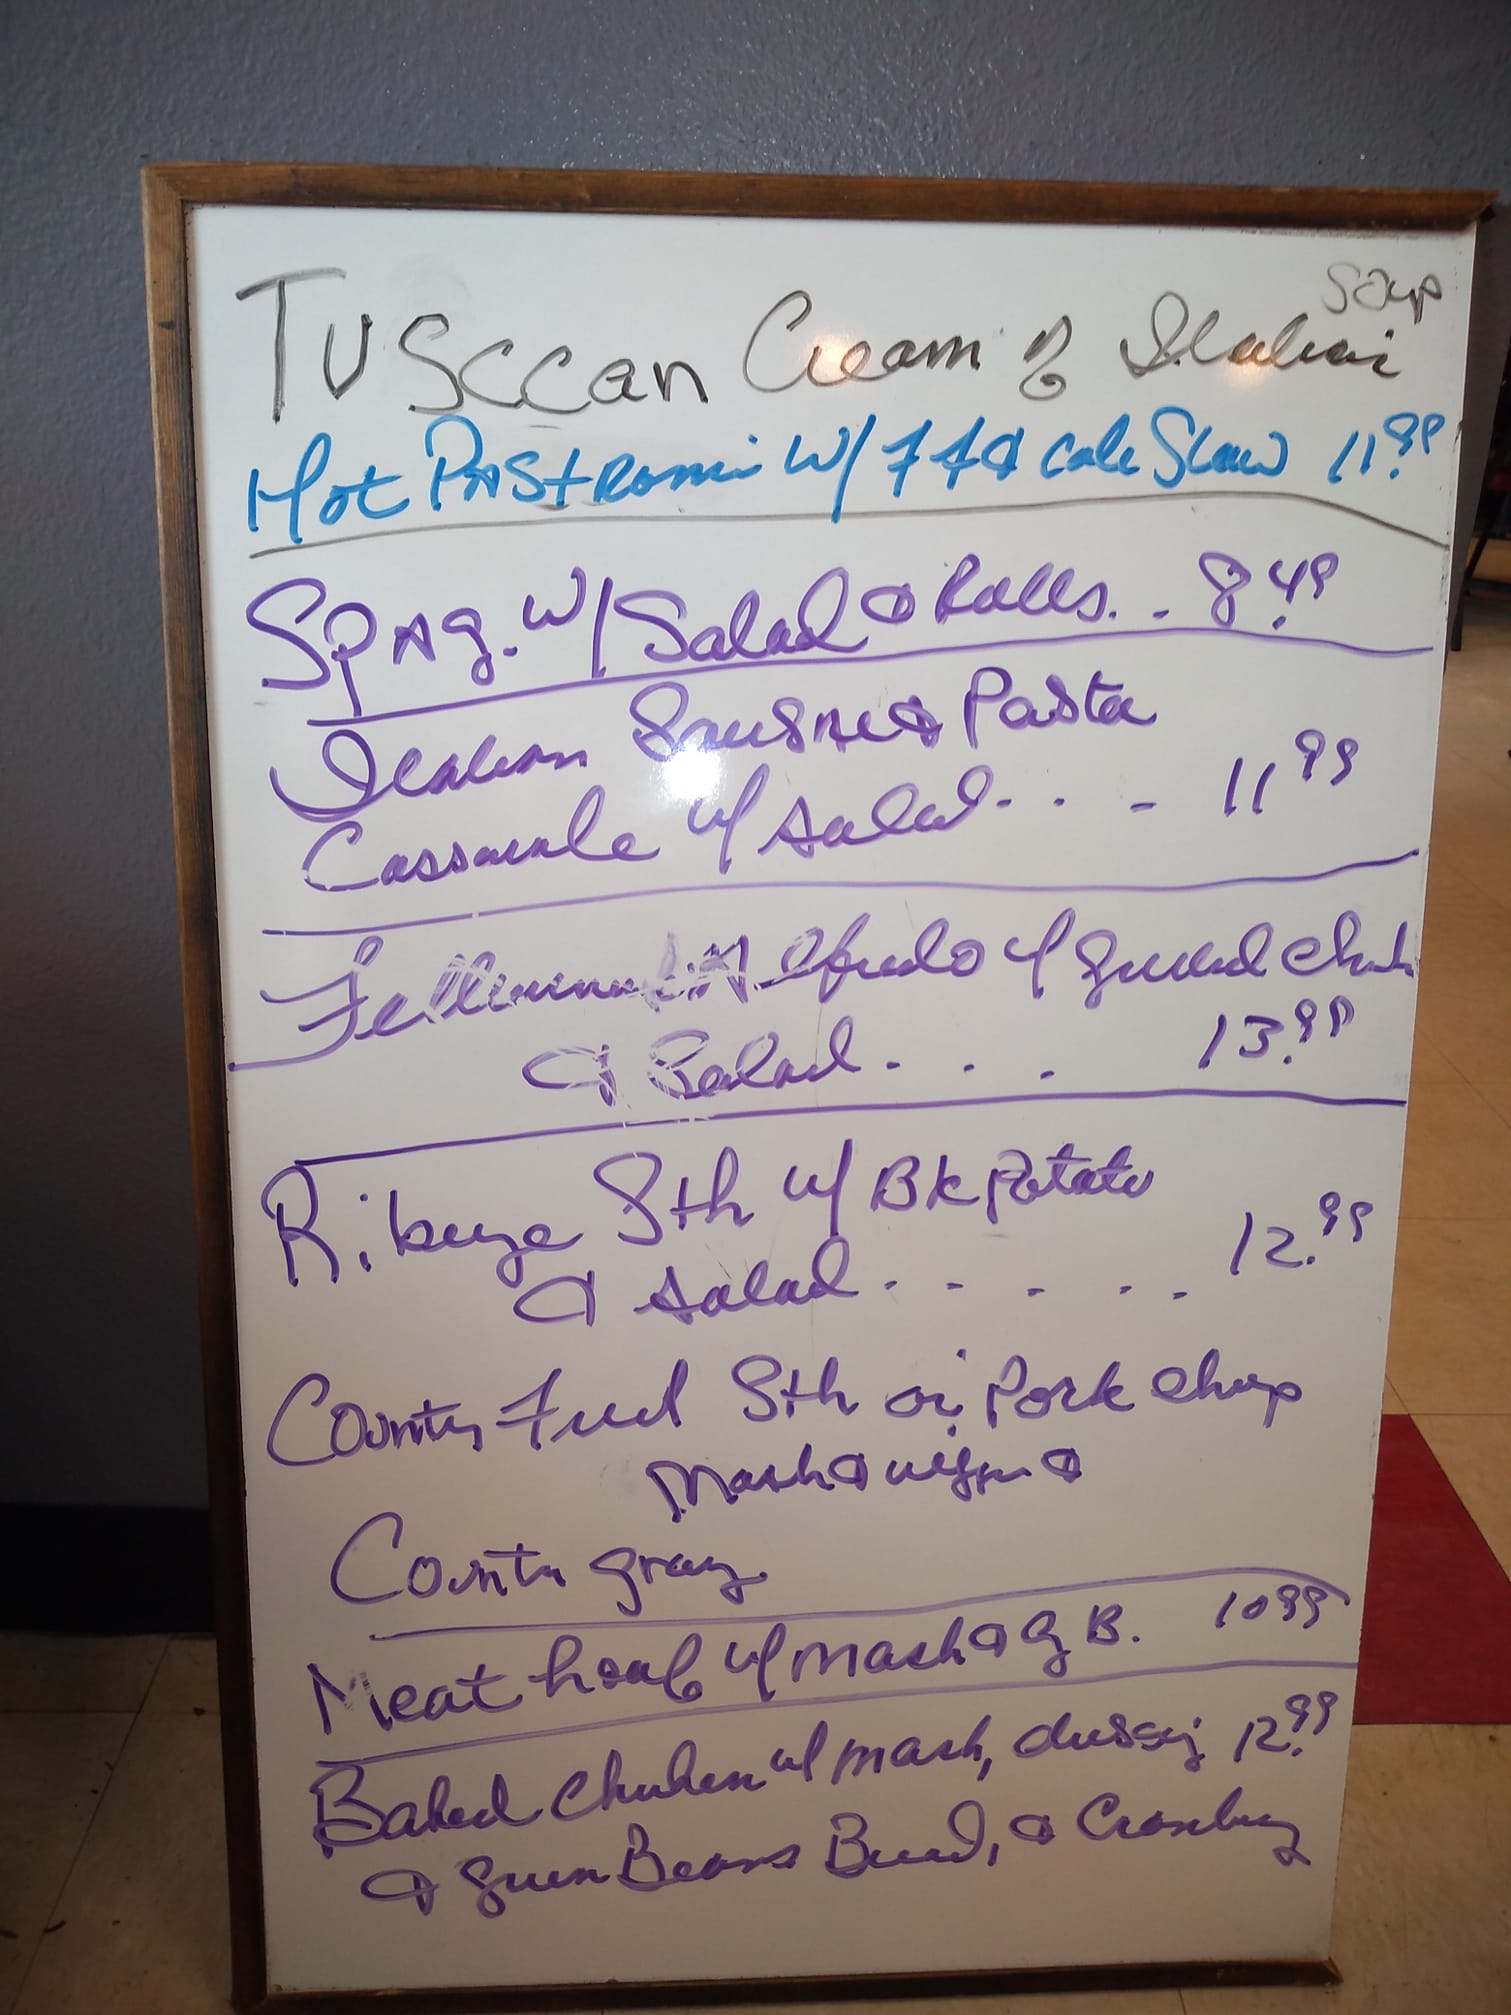 Soup
Tusccan Cream of Italian
Hot Pastromi w/ FF & Cole Slaw 11.99
Spag. w/ Salad & Rolls.. 8.49
Italian Sausage & Pasta
Casserole w/ Salad... 11.99
Fettuccine Alfredo w/ Grilled Chick
& Salad... 13.99
Ribeye Stk w/ BK Potato
& Salad..... 12.99
Country Fried Stk or Pork Chop
Mash & &
Country Gravy
Meat Loaf w/ Mash & G B. 10 99
Baked Chicken w/ Mash, dressing 12.99
& Green Beans Bread, & Cranberry